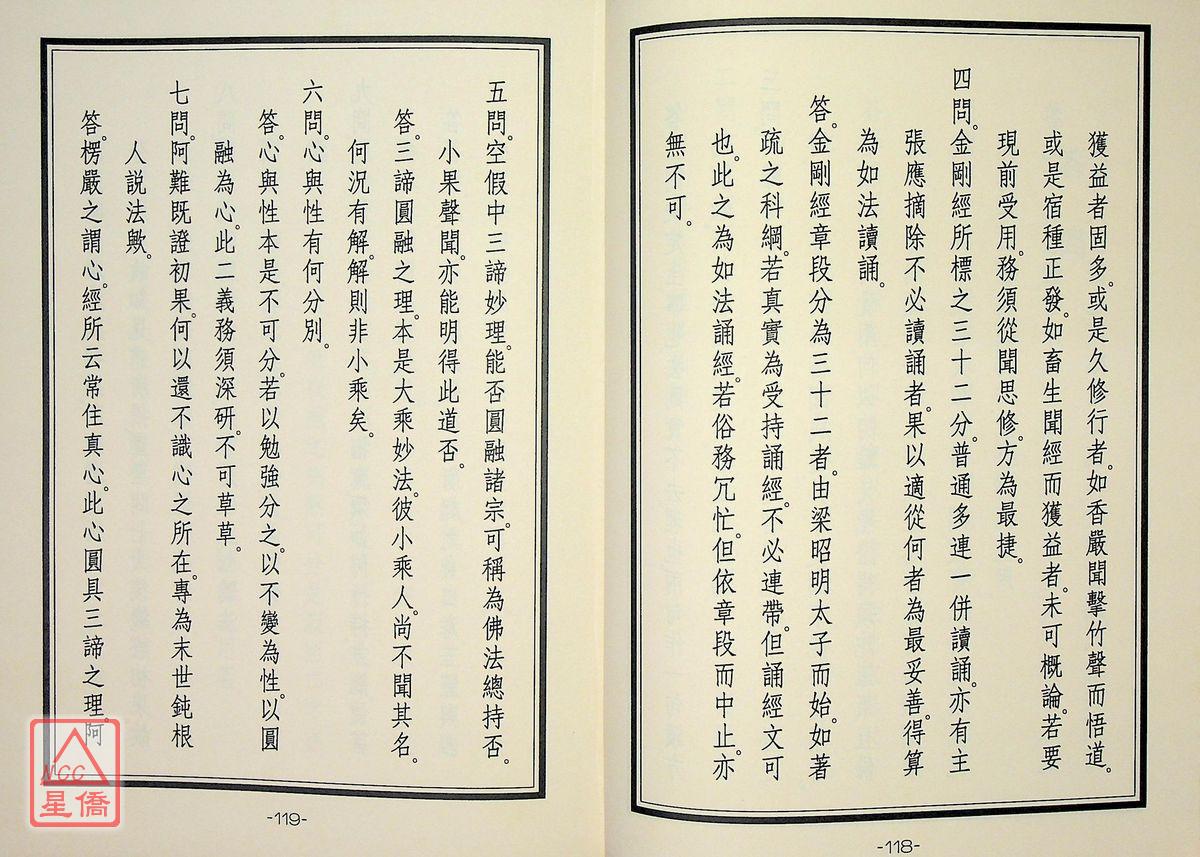 獲益者固多。或是久修行者。如香嚴聞擊竹聲而悟道。
或是宿種正發。如畜生聞經而獲益者。未可概論。若要
現前受用。務須從聞思修。方為最捷。
四問。金剛經所標之三十二分。普通多連一併讀誦。亦有主
張應摘除不必讀誦者。果以適從何者為最妥善。得算
為如法讀誦。
答。金剛經章段分為三十二者。由梁昭明太子而始。如著
疏之科綱。若真實為受持誦經。不必連帶。但誦經文可
也。此之為如法誦經。若俗務冗忙。但依章段而中止。亦
無不可。
-118-
五問。空假中三諦妙理。能否圓融諸宗。可稱為佛法總持否。
小果聲聞。亦能明得此道否。
答。三諦圓融之理。本是大乘妙法。彼小乘人。尚不聞其名。
何況有解。解則非小乘矣。
六問。心與性有何分別。
答。心與性本是不可分。若以勉強分之。以不變為性。以圓
融為心。此二義務須深研。不可草草。
七問。阿難既證初果。何以還不識心之所在。專為末世鈍根
人說法歟。
答。楞嚴之謂心。經所云常住真心。此心圓具三諦之理。阿
-119-
MCC
星僑